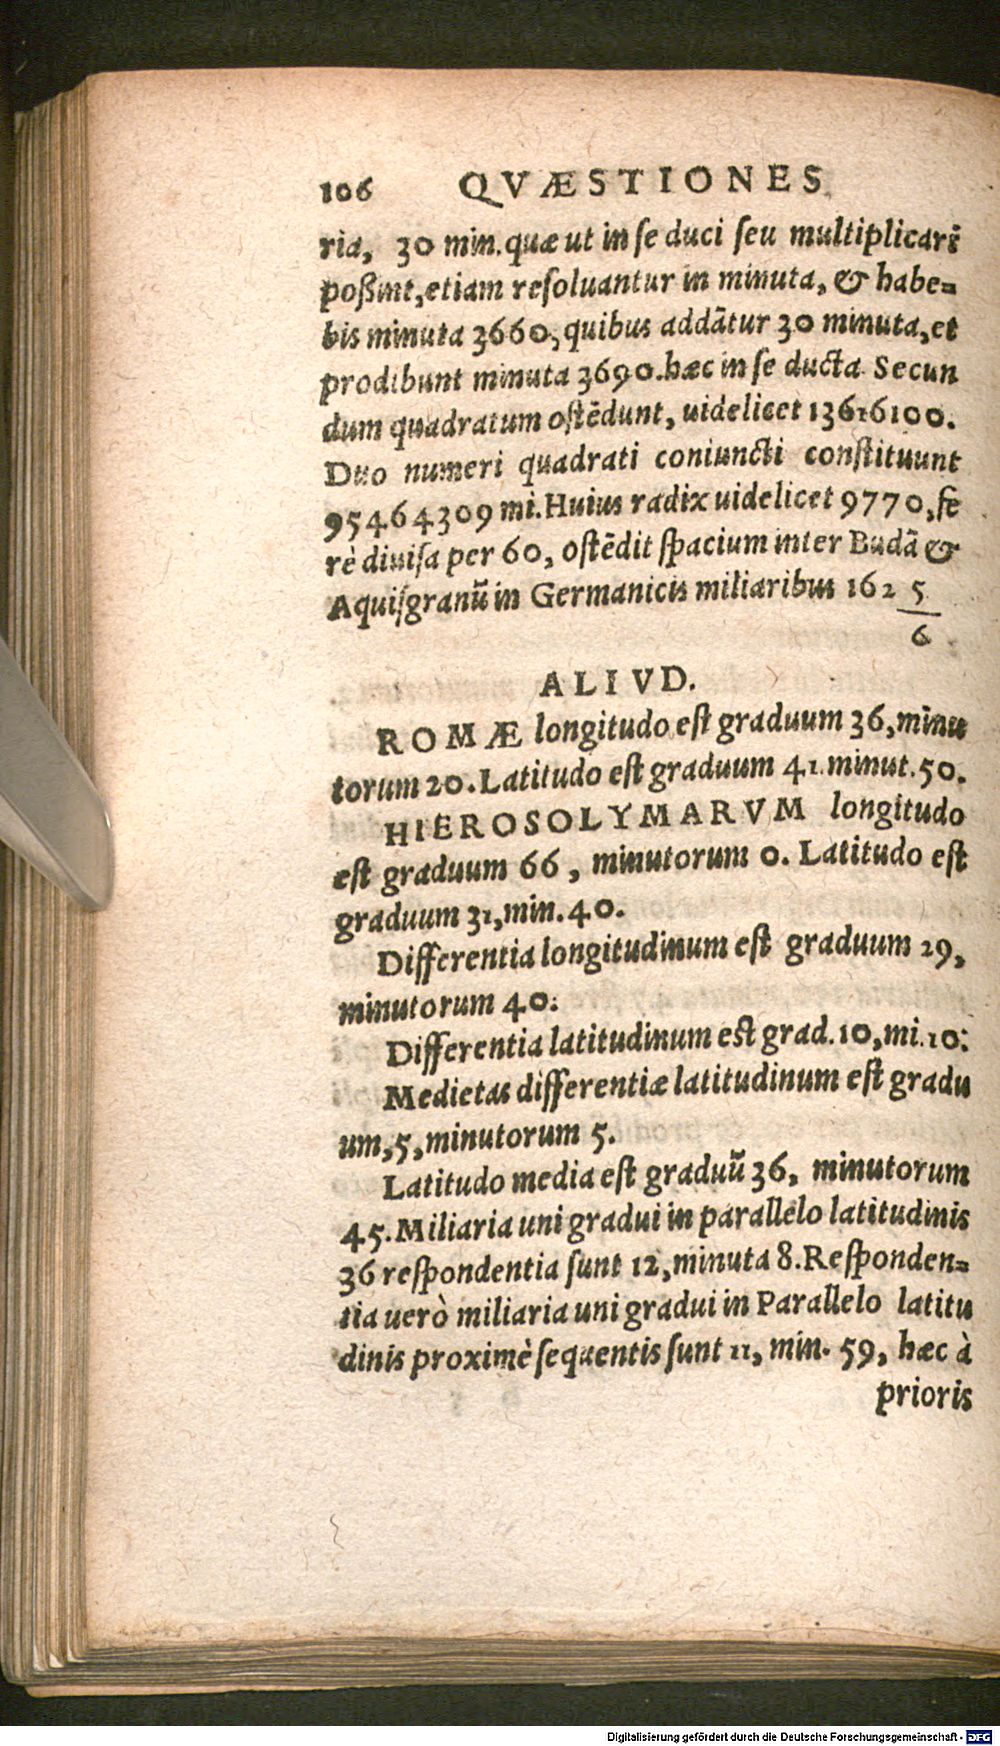 106 QVÆSTIONES
ria, 30 min. quæ ut in se duci seu multiplicarẽ
poßint, etiam resoluantur in minuta, & habe=
bis minuta 3660, quibus addãtur 30 minuta, et
prodibunt minuta 3690. hæc in se ducta Secun
dum quadratum ostẽdunt, uidelicet 13616100.
Duo numeri quadrati coniuncti constituunt
95464309 mi. Huius radix uidelicet 9770, fe
rè diuisa per 60, ostẽdit spacium inter Budã &
Aquisgranũ in Germanicis miliaribus 162 5
6
ALIVD.
ROMÆ longitudo est graduum 36, minu
torum 20. Latitudo est graduum 41. minut. 50.
HIEROSOLYMARVM longitudo
est graduum 66, minutorum 0. Latitudo est
graduum 31, min. 40.
Differentia longitudinum est graduum 29,
minutorum 40.
Differentia latitudinum est grad. 10, mi. 10:
Medietas differentiæ latitudinum est gradu
um, 5, minutorum 5.
Latitudo media est graduũ 36, minutorum
45. Miliaria uni gradui in parallelo latitudinis
36 respondentia sunt 12, minuta 8. Responden=
tia uerò miliaria uni gradui in Parallelo latitu
dinis proximè sequentis sunt 11, min. 59, hæc à
prioris
Digitalisierung gefördert durch die Deutsche Forschungsgemeinschaft - DFG